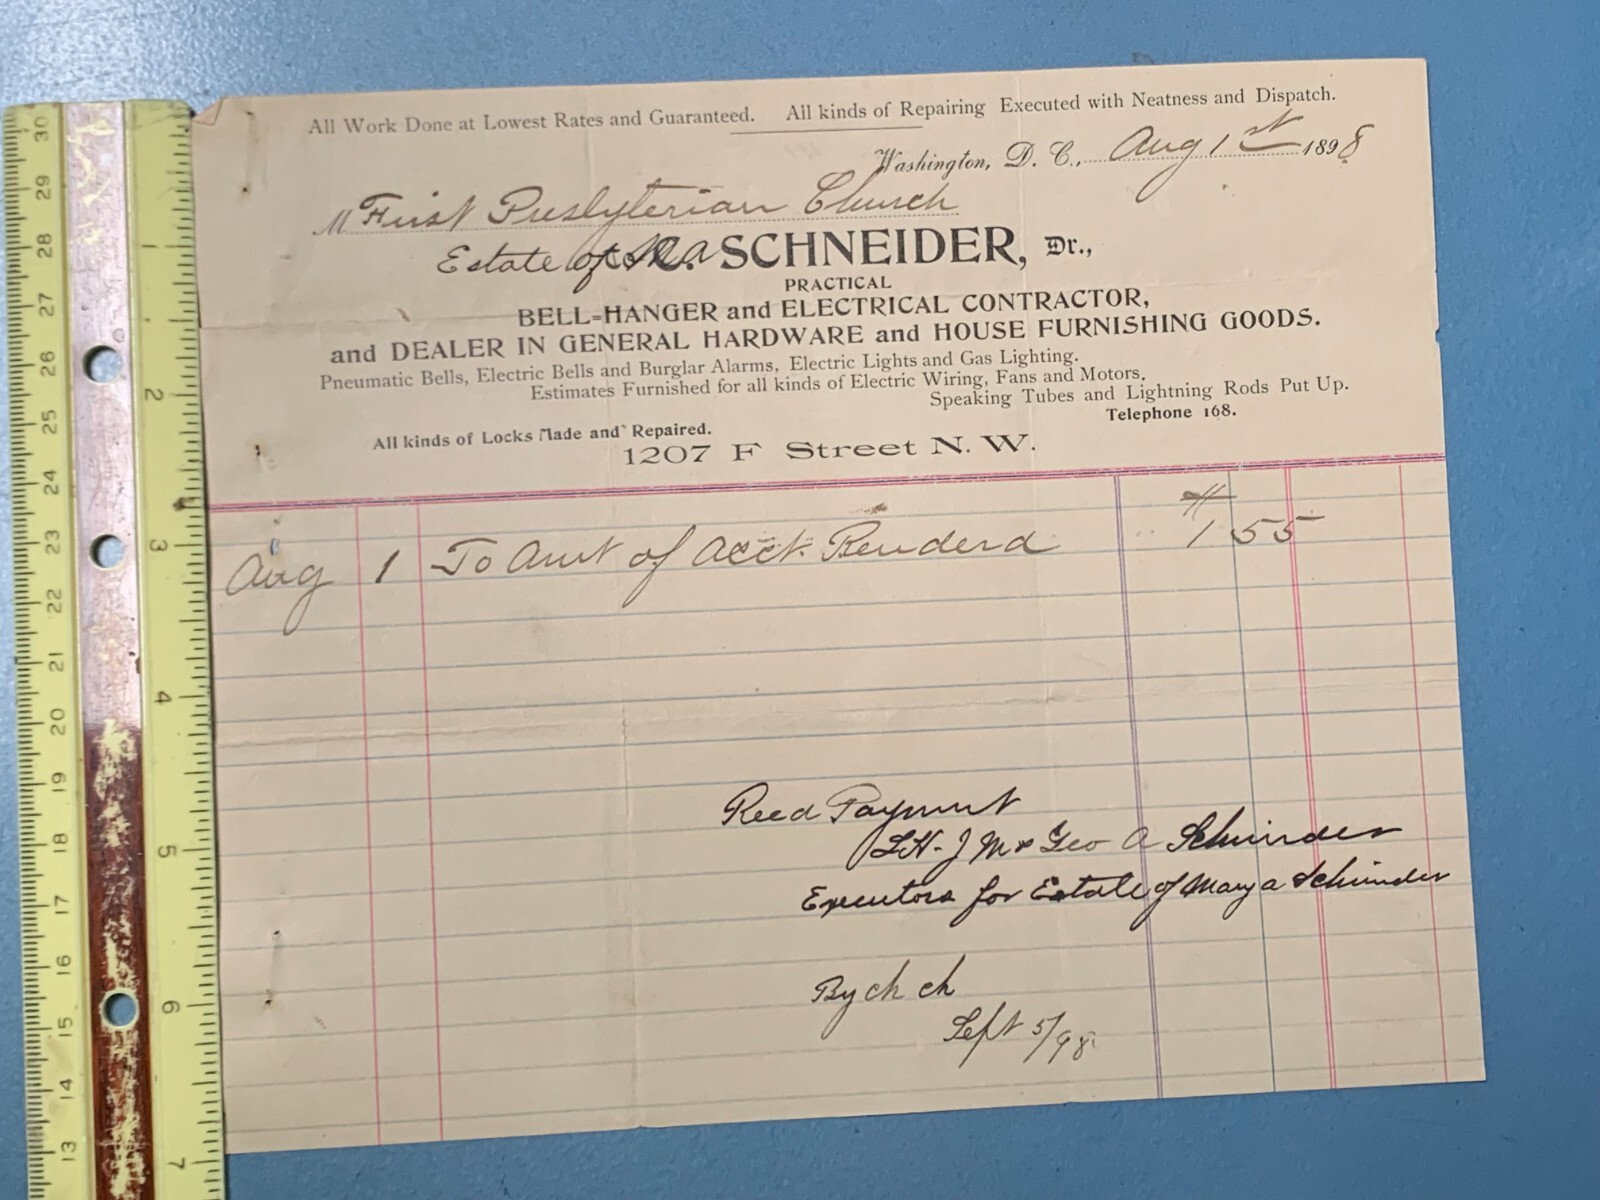 All Work Done at Lowest Rates and Guaranteed. All kinds of Repairing Executed with Neatness and Dispatch.
Washington, D. C., Aug 1st 1898
M First Presbyterian Church
Estate of M A SCHNEIDER, Dr.,
PRACTICAL
BELL-HANGER and ELECTRICAL CONTRACTOR,
and DEALER IN GENERAL HARDWARE and HOUSE FURNISHING GOODS.
Pneumatic Bells, Electric Bells and Burglar Alarms, Electric Lights and Gas Lighting.
Estimates Furnished for all kinds of Electric Wiring, Fans and Motors.
Speaking Tubes and Lightning Rods Put Up.
Telephone 168.
All kinds of Locks Made and Repaired.
1207 F Street N. W.
Aug 1 To Amt of Acct. Renderd 1 55
Recd Payment
Geo A Schneider
Executors for Estate of Mary A Schneider
By ch ch
Sept 5/98
30 29 28 27 26 25 24 23 22 21 20 19 18 17 16 15 14 13
1 2 3 4 5 6 7